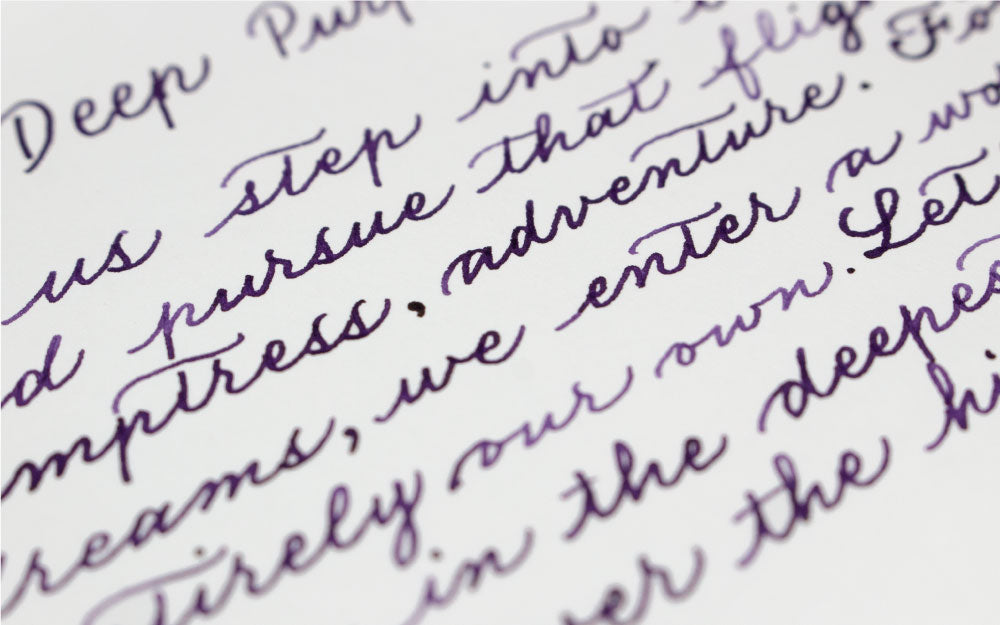 Deep Pur
us step into
d pursue that flig
mptress, adventure. Fo
reams, we enter a wo
tirely our own. Let
in the deepes
ver the hi